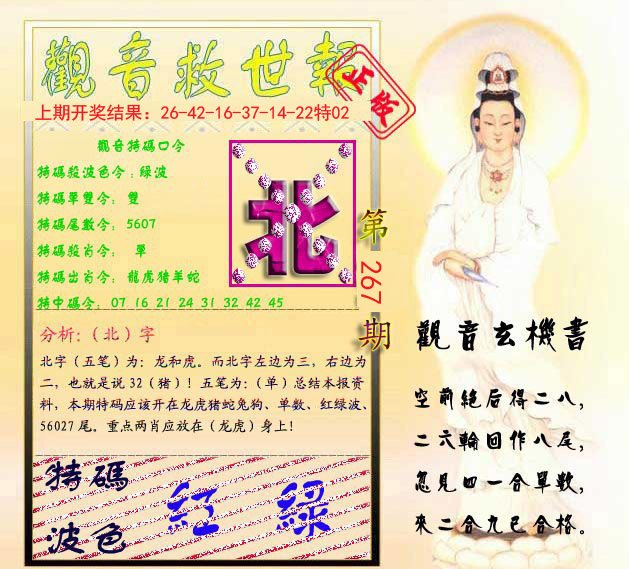 觀音救世報
正版
上期开奖结果：26-42-16-37-14-22特02
觀音特碼口令
特碼殺波色令：綠波
特碼單雙令： 雙
特碼尾數令： 5607
特碼殺肖令： 單
特碼出肖令： 龍虎豬羊蛇
特中碼令： 07 16 21 24 31 32 42 45
北
第267期
分析:（北）字
北字（五笔）为：龙和虎。而北字左边为三，右边为
二，也就是说32（猪）！五笔为：（单）总结本报资
料，本期特码应该开在龙虎猪蛇兔狗、单数、红绿波、
56027尾。重点两肖应放在（龙虎）身上！
特碼
波色
红 绿
觀音玄機書
空前絕后得二八，
二六輪回作八尾，
忽見四一合單數，
來二合九已合格。